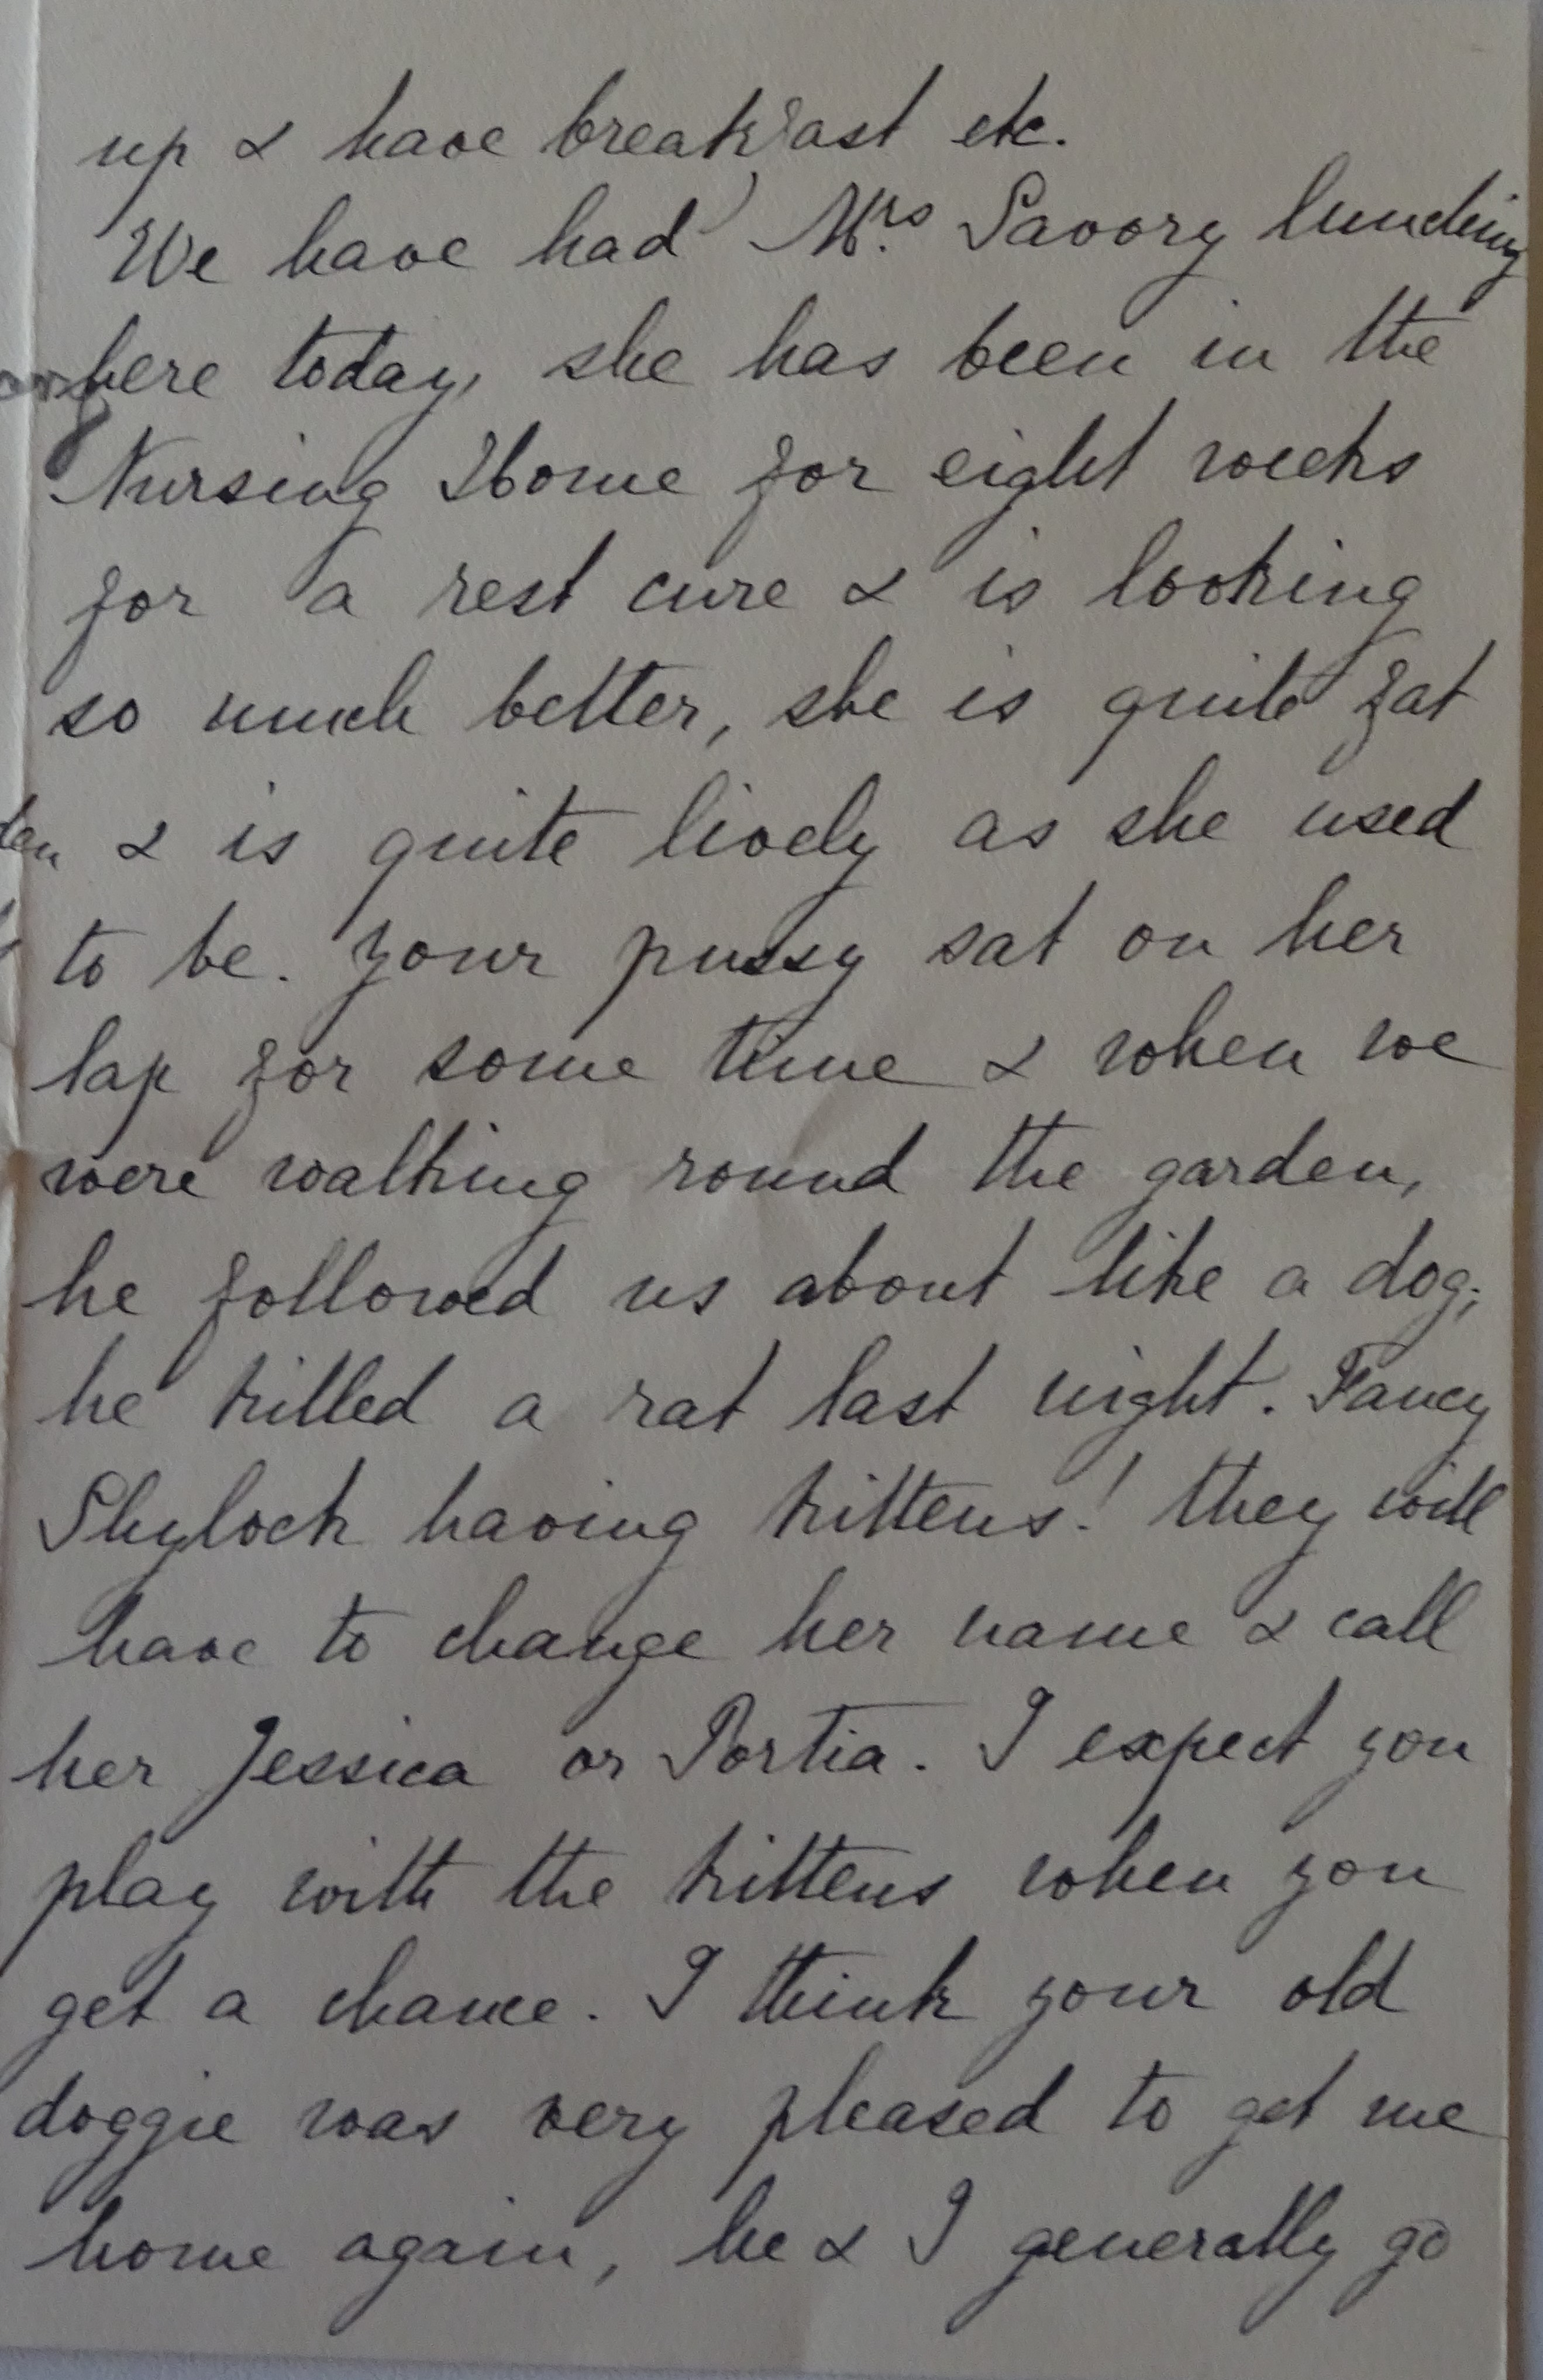 up & have breakfast etc.
We have had Mrs Savory lunching
here today, she has been in the
Nursing Home for eight weeks
for a rest cure & is looking
so much better, she is quite fat
& is quite lively as she used
to be. Your pussy sat on her
lap for some time & when we
were walking round the garden,
he followed us about like a dog;
he killed a rat last night. Fancy
Shylock having kittens! they will
have to change her name & call
her Jessica or Portia. I expect you
play with the kittens when you
get a chance. I think your old
doggie was very pleased to get me
home again, he & I generally go